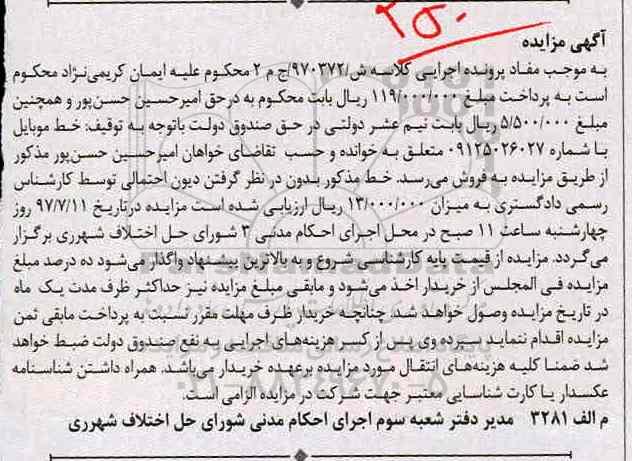 ۲۵۰
آگهی مزایده
به موجب مفاد پرونده اجرایی کلاسه ش/۹۷۰۳۷۲/ج م ۲ محکوم علیه ایمان کریمی‌نژاد محکوم
است به پرداخت مبلغ ۱۱۹/۰۰۰/۰۰۰ ریال بابت محکوم به درحق امیرحسین حسن‌پور و همچنین
مبلغ ۵/۵۰۰/۰۰۰ ریال بابت نیم عشر دولتی در حق صندوق دولت باتوجه به توقیف: خط موبایل
با شماره ۰۹۱۲۵۰۲۶۰۲۷ متعلق به خوانده و حسب تقاضای خواهان امیرحسین حسن‌پور مذکور
از طریق مزایده به فروش می‌رسد. خط مذکور بدون در نظر گرفتن دیون احتمالی توسط کارشناس
رسمی دادگستری به میزان ۱۳/۰۰۰/۰۰۰ ریال ارزیابی شده است مزایده درتاریخ ۹۷/۷/۱۱ روز
چهارشنبه ساعت ۱۱ صبح در محل اجرای احکام مدنی ۳ شورای حل اختلاف شهرری برگزار
می‌گردد. مزایده از قیمت پایه کارشناسی شروع و به بالاترین پیشنهاد واگذار می‌شود ده درصد مبلغ
مزایده فی المجلس از خریدار اخذ می‌شود و مابقی مبلغ مزایده نیز حداکثر ظرف مدت یک ماه
در تاریخ مزایده وصول خواهد شد. چنانچه خریدار ظرف مهلت مقرر نسبت به پرداخت مابقی ثمن
مزایده اقدام ننماید سپرده وی پس از کسر هزینه‌های اجرایی به نفع صندوق دولت ضبط خواهد
شد ضمنا کلیه هزینه‌های انتقال مورد مزایده برعهده خریدار می‌باشد. همراه داشتن شناسنامه
عکسدار یا کارت شناسایی معتبر جهت شرکت در مزایده الزامی است.
م الف ۳۲۸۱ مدیر دفتر شعبه سوم اجرای احکام مدنی شورای حل اختلاف شهرری